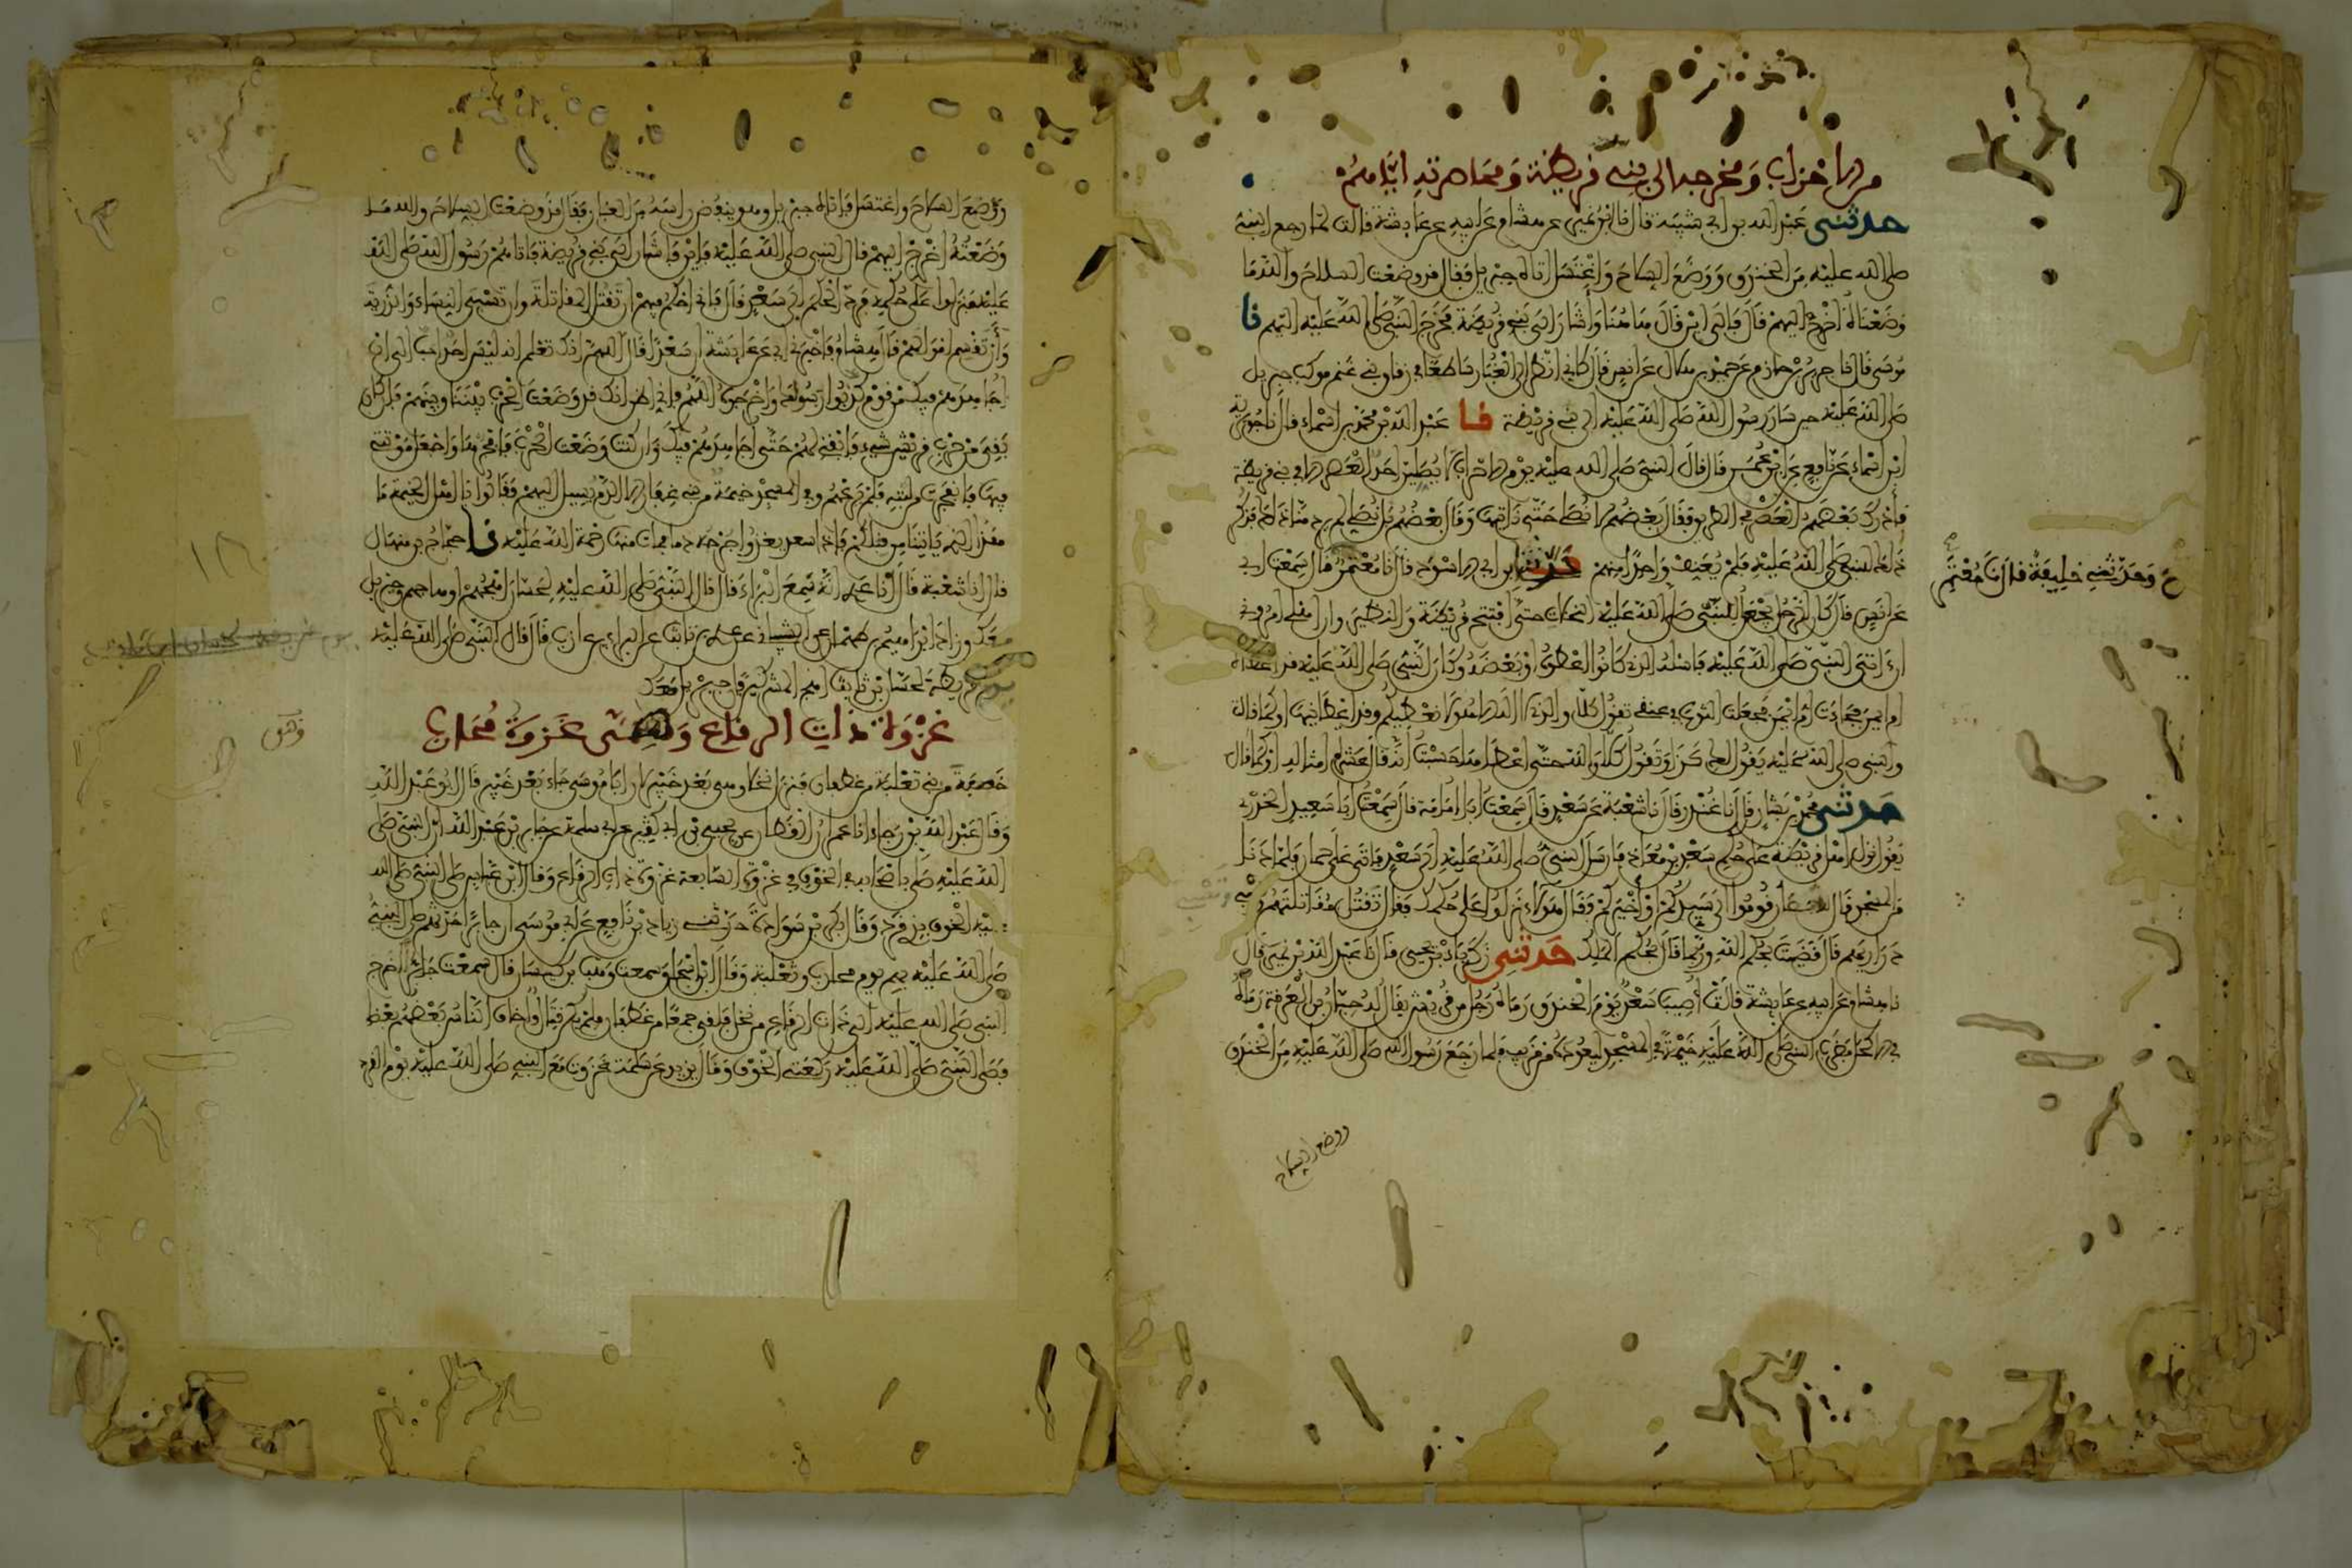 من الاحزاب ومخرجه الى بني قريظة ومحاصرته اياهم
حدثني عبد الله بن ابي شيبة قال نا ابن نمير عن هشام عن ابيه عن عايشة قالت لما رجع النبي
صلى الله عليه من الخندق ووضع السلاح واغتسل اتاه جبريل فقال قد وضعت السلاح والله ما
وضعناه اخرج اليهم قال فالى اين قال هاهنا واشار الى بني قريظة فخرج النبي صلى الله عليه اليهم نا
موسى قال نا جرير بن حازم عن حميد بن هلال عن انس قال كاني انظر الى الغبار ساطعا في زقاق بني غنم موكب جبريل
صلى الله عليه حين سار رسول الله صلى الله عليه الى بني قريظة نا عبد الله بن محمد بن اسماء قال نا جويرية
ابن اسماء عن نافع عن ابن عمر قال قال النبي صلى الله عليه يوم الاحزاب لا يصلين احد العصر الا في بني قريظة
فادرك بعضهم العصر في الطريق فقال بعضهم لا نصلي حتى ناتيها وقال بعضهم بل نصلي لم يرد منا ذلك فذكر
ذلك للنبي صلى الله عليه فلم يعنف واحدا منهم حدثنا ابن ابي الاسود قال نا معتمر قال سمعت ابي
ح وحدثني خليفة قال نا معتمر
عن انس قال كان الرجل يجعل للنبي صلى الله عليه النخلات حتى افتتح قريظة والنضير وان اهلي امروني
ان اتي النبي صلى الله عليه فاسئله الذي كانوا اعطوه او بعضه وكان النبي صلى الله عليه قد اعطاه
ام ايمن فجاءت ام ايمن فجعلت الثوب في عنقي تقول كلا والذي لا اله الا هو لا نعطيكهم وقد اعطانيها او كما قالت
والنبي صلى الله عليه يقول لك كذا وتقول كلا والله حتى اعطاها حسبت انه قال عشرة امثاله او كما قال
حدثني محمد بن بشار قال نا غندر قال نا شعبة عن سعد قال سمعت ابا امامة قال سمعت ابا سعيد الخدري
يقول نزل اهل قريظة على حكم سعد بن معاذ فارسل النبي صلى الله عليه الى سعد فاتى على حمار فلما دنا
من المسجد قال للانصار قوموا الى سيدكم او خيركم فقال هؤلاء نزلوا على حكمك فقال تقتل مقاتلتهم وتسبي
ذراريهم قال قضيت بحكم الله وربما قال بحكم الملك حدثني زكرياء بن يحيى قال نا عبد الله بن نمير قال
نا هشام عن ابيه عن عايشة قالت اصيب سعد يوم الخندق رماه رجل من قريش يقال له حبان بن العرقة رماه
في الاكحل فضرب النبي صلى الله عليه خيمة في المسجد ليعوده من قريب فلما رجع رسول الله صلى الله عليه من الخندق
ووضع السلاح
ووضع السلاح واغتسل فاتاه جبريل وهو ينفض راسه من الغبار فقال قد وضعت السلاح والله ما
وضعته اخرج اليهم قال النبي صلى الله عليه فاين فاشار الى بني قريظة فاتاهم رسول الله صلى الله
عليه فنزلوا على حكمه فرد الحكم الى سعد قال فاني احكم فيهم ان تقتل المقاتلة وان تسبى النساء والذرية
وان تقسم اموالهم قال هشام فاخبرني ابي عن عايشة ان سعدا قال اللهم انك تعلم انه ليس احد احب الي ان
اجاهدهم فيك من قوم كذبوا رسولك واخرجوه اللهم فاني اظن انك قد وضعت الحرب بيننا وبينهم فان كان
بقي من حرب قريش شيء فابقني لهم حتى اجاهدهم فيك وان كنت وضعت الحرب فافجرها واجعل موتتي
فيها فانفجرت من لبته فلم يرعهم وفي المسجد خيمة من بني غفار الا الدم يسيل اليهم فقالوا يا اهل الخيمة ما
هذا الذي ياتينا من قبلكم فاذا سعد يغذوا جرحه دما فمات منها رحمة الله عليه نا حجاج بن منهال
قال انا شعبة قال انا عدي انه سمع البراء قال قال النبي صلى الله عليه لحسان اهجهم او هاجهم وجبريل
معك وزاد ابراهيم بن طهمان عن الشيباني عن عدي بن ثابت عن البراء بن عازب قال قال النبي صلى الله عليه
يوم قريظة لحسان بن ثابت اهج المشركين فان جبريل معك
غزوة ذات الرقاع وهي غزوة محارب
وهي
خصفة من بني ثعلبة من غطفان فنزل نخلا وهي بعد خيبر لان ابا موسى جاء بعد خيبر قال ابو عبد الله
وقال عبد الله بن رجاء انا عمران القطان عن يحيى بن ابي كثير عن ابي سلمة عن جابر بن عبد الله ان النبي صلى
الله عليه صلى باصحابه في الخوف في غزوة السابعة غزوة ذات الرقاع وقال ابن عباس صلى النبي صلى الله
عليه الخوف بذي قرد وقال بكر بن سوادة حدثني زياد بن نافع عن ابي موسى ان جابرا حدثهم صلى النبي
صلى الله عليه بهم يوم محارب وثعلبة وقال ابن اسحاق سمعت وهب بن كيسان قال سمعت جابرا خرج
النبي صلى الله عليه الى ذات الرقاع من نخل فلقي جمعا من غطفان فلم يكن قتال واخاف الناس بعضهم بعضا
فصلى النبي صلى الله عليه ركعتي الخوف وقال يزيد عن سلمة غزوت مع النبي صلى الله عليه يوم القرد